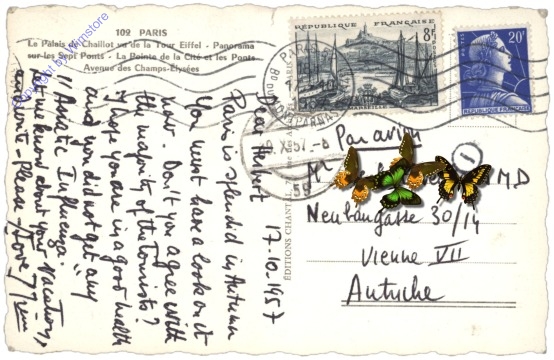 102 PARIS
Le Palais de Chaillot vu de la Tour Eiffel - Panorama
sur les Sept Ponts - La Pointe de la Cité et les Ponts
Avenue des Champs-Elysées
17.10.1957
Dear Hubert
Paris is splendid in Autumn
You must have a look on it
now. Don't you agree with
the majority of the tourists?
I hope you are in a good health
and you did not get any
"Asiatic Influenza".
Let me know about your Vacation,
and write - please - Love
ÉDITIONS CHANTAL, 7
RÉPUBLIQUE FRANÇAISE
8F
MARSEILLE
20F
RÉPUBLIQUE FRANÇAISE
PARIS
X.57
59
Par avion
1
MD
Neubaugasse 30/14
Vienne VII
Autriche